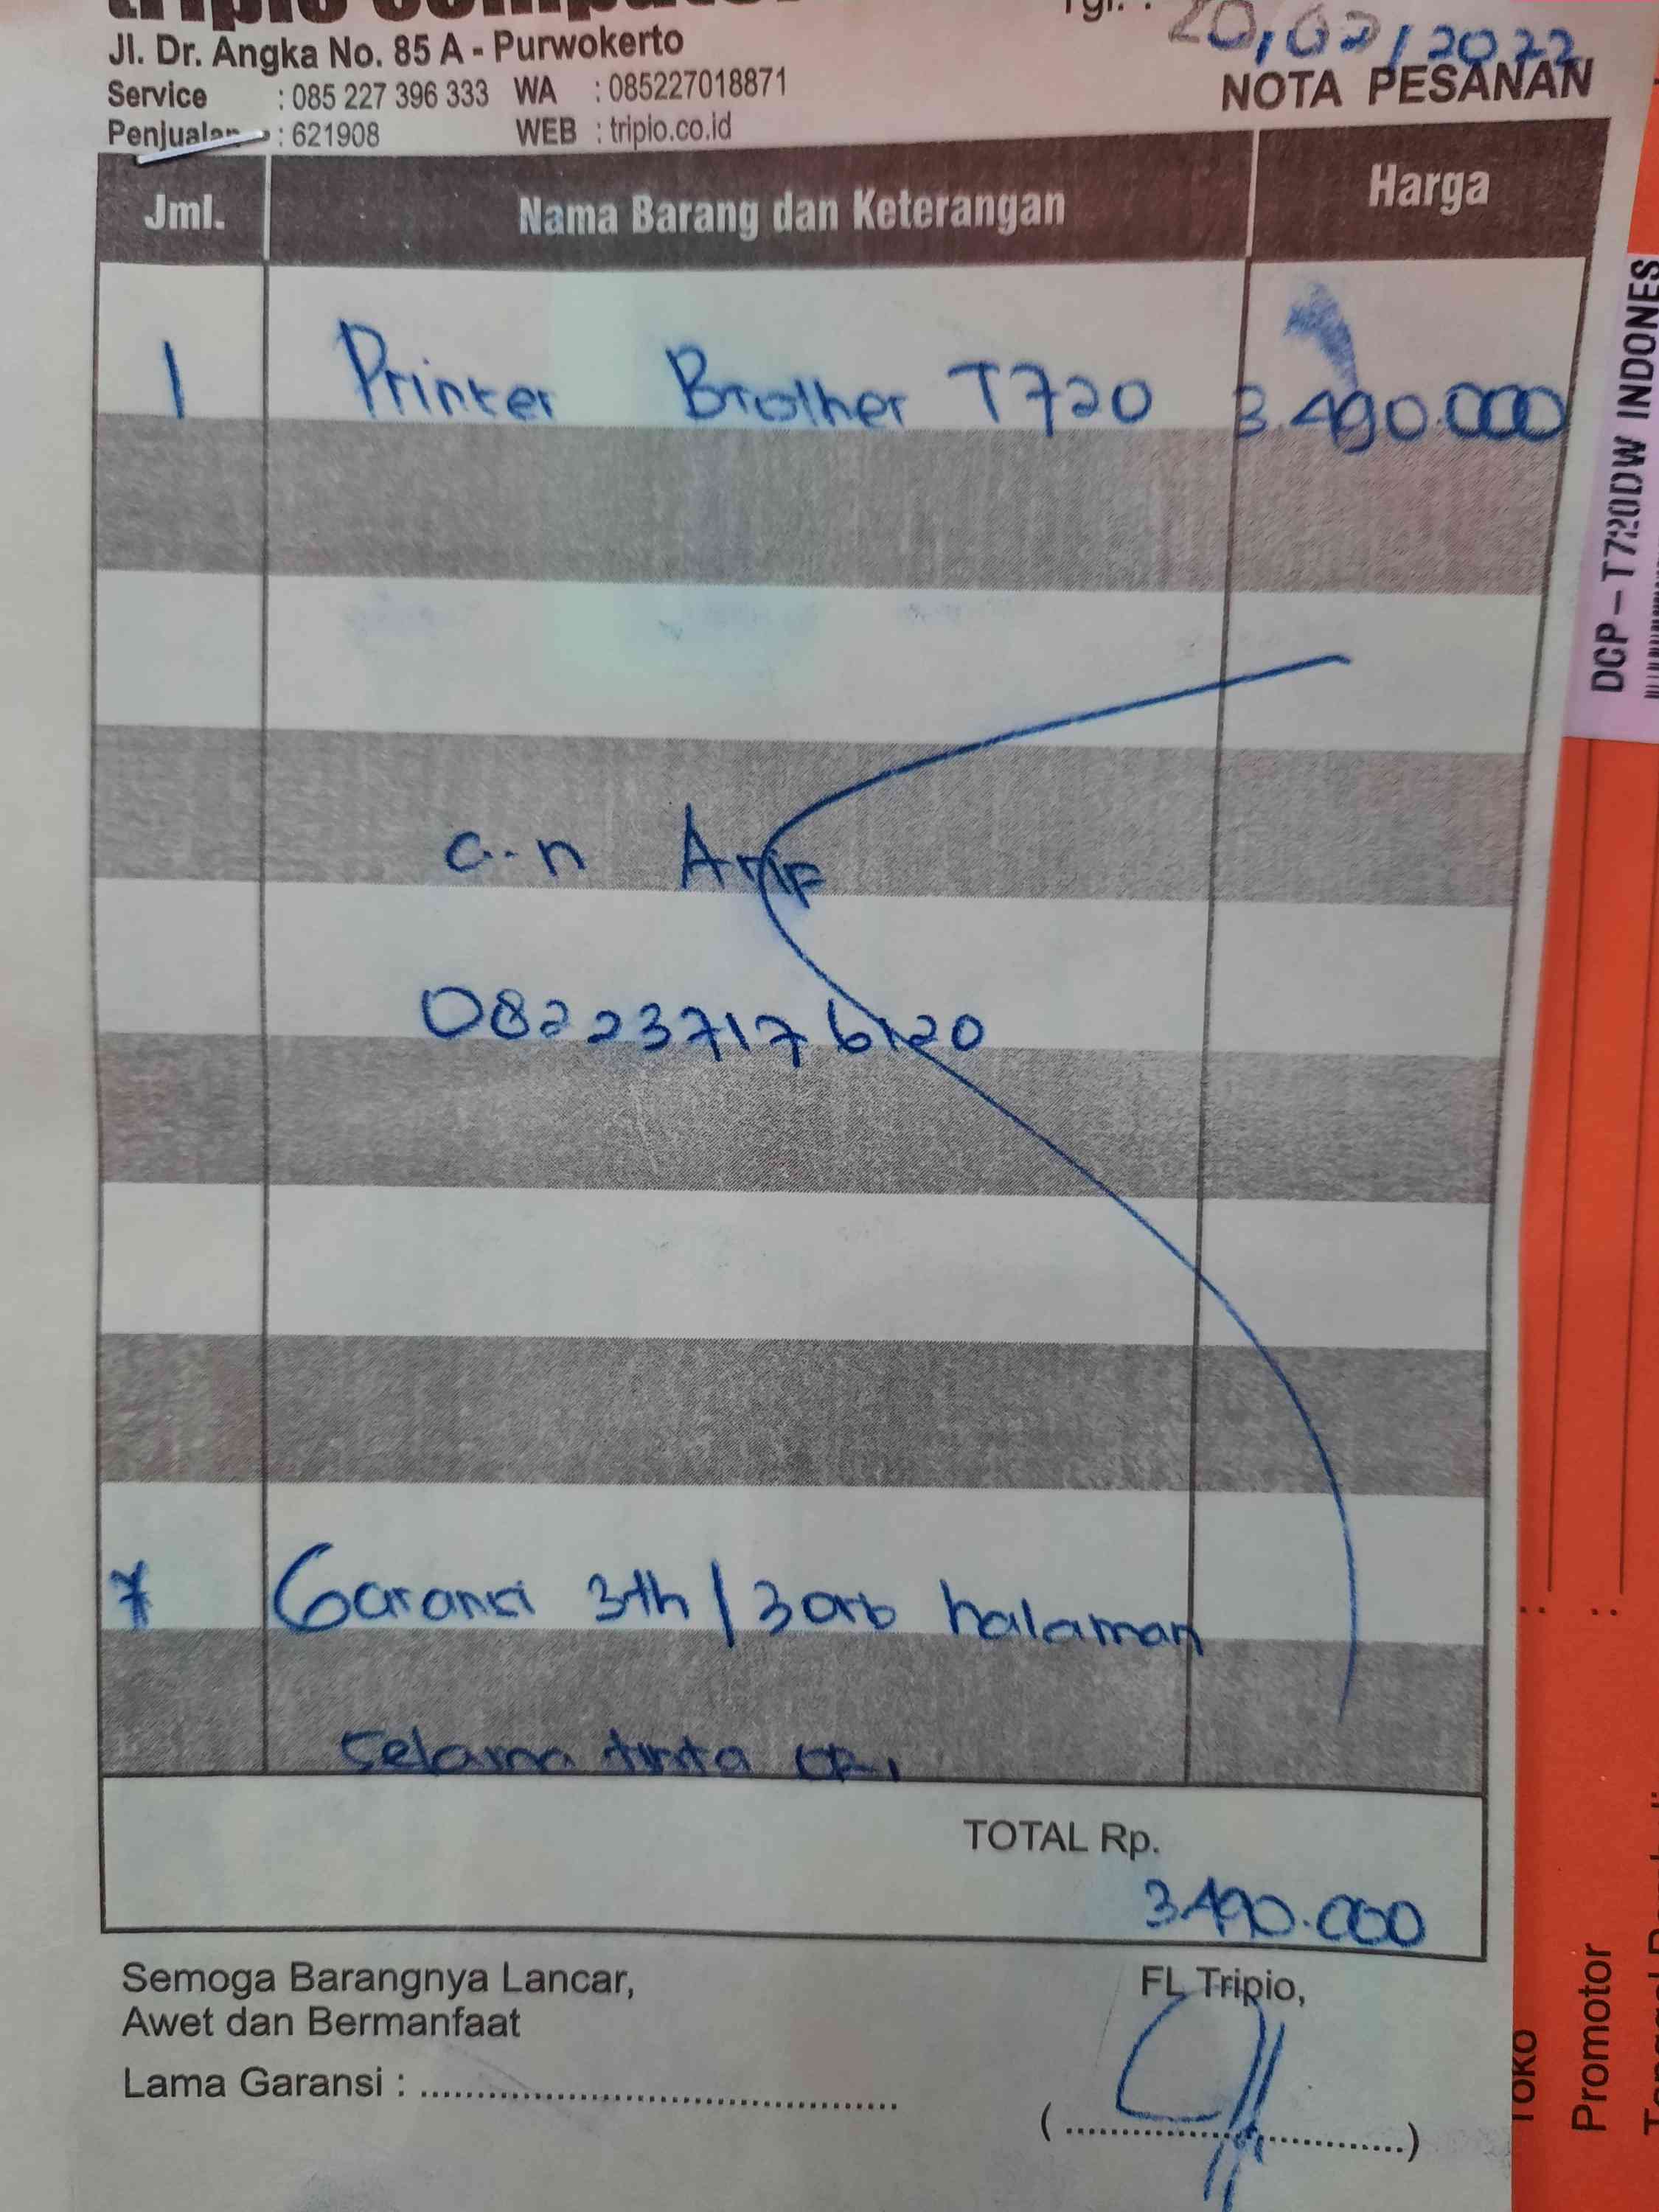 tripio computer
Tgl. : 20/02/2022
Jl. Dr. Angka No. 85 A - Purwokerto
Service : 085 227 396 333 WA : 085227018871
NOTA PESANAN
Penjualan : 621908 WEB : tripio.co.id
Jml. Nama Barang dan Keterangan Harga
1 Printer Brother T720 3.490.000
a.n Arif
082237176120
* Garansi 3th / 30rb halaman
selama tinta ORI
TOTAL Rp.
3.490.000
Semoga Barangnya Lancar,
Awet dan Bermanfaat
FL Tripio,
Lama Garansi : ..........
(..........)
DCP-T720DW INDONES
Toko :
Promotor :